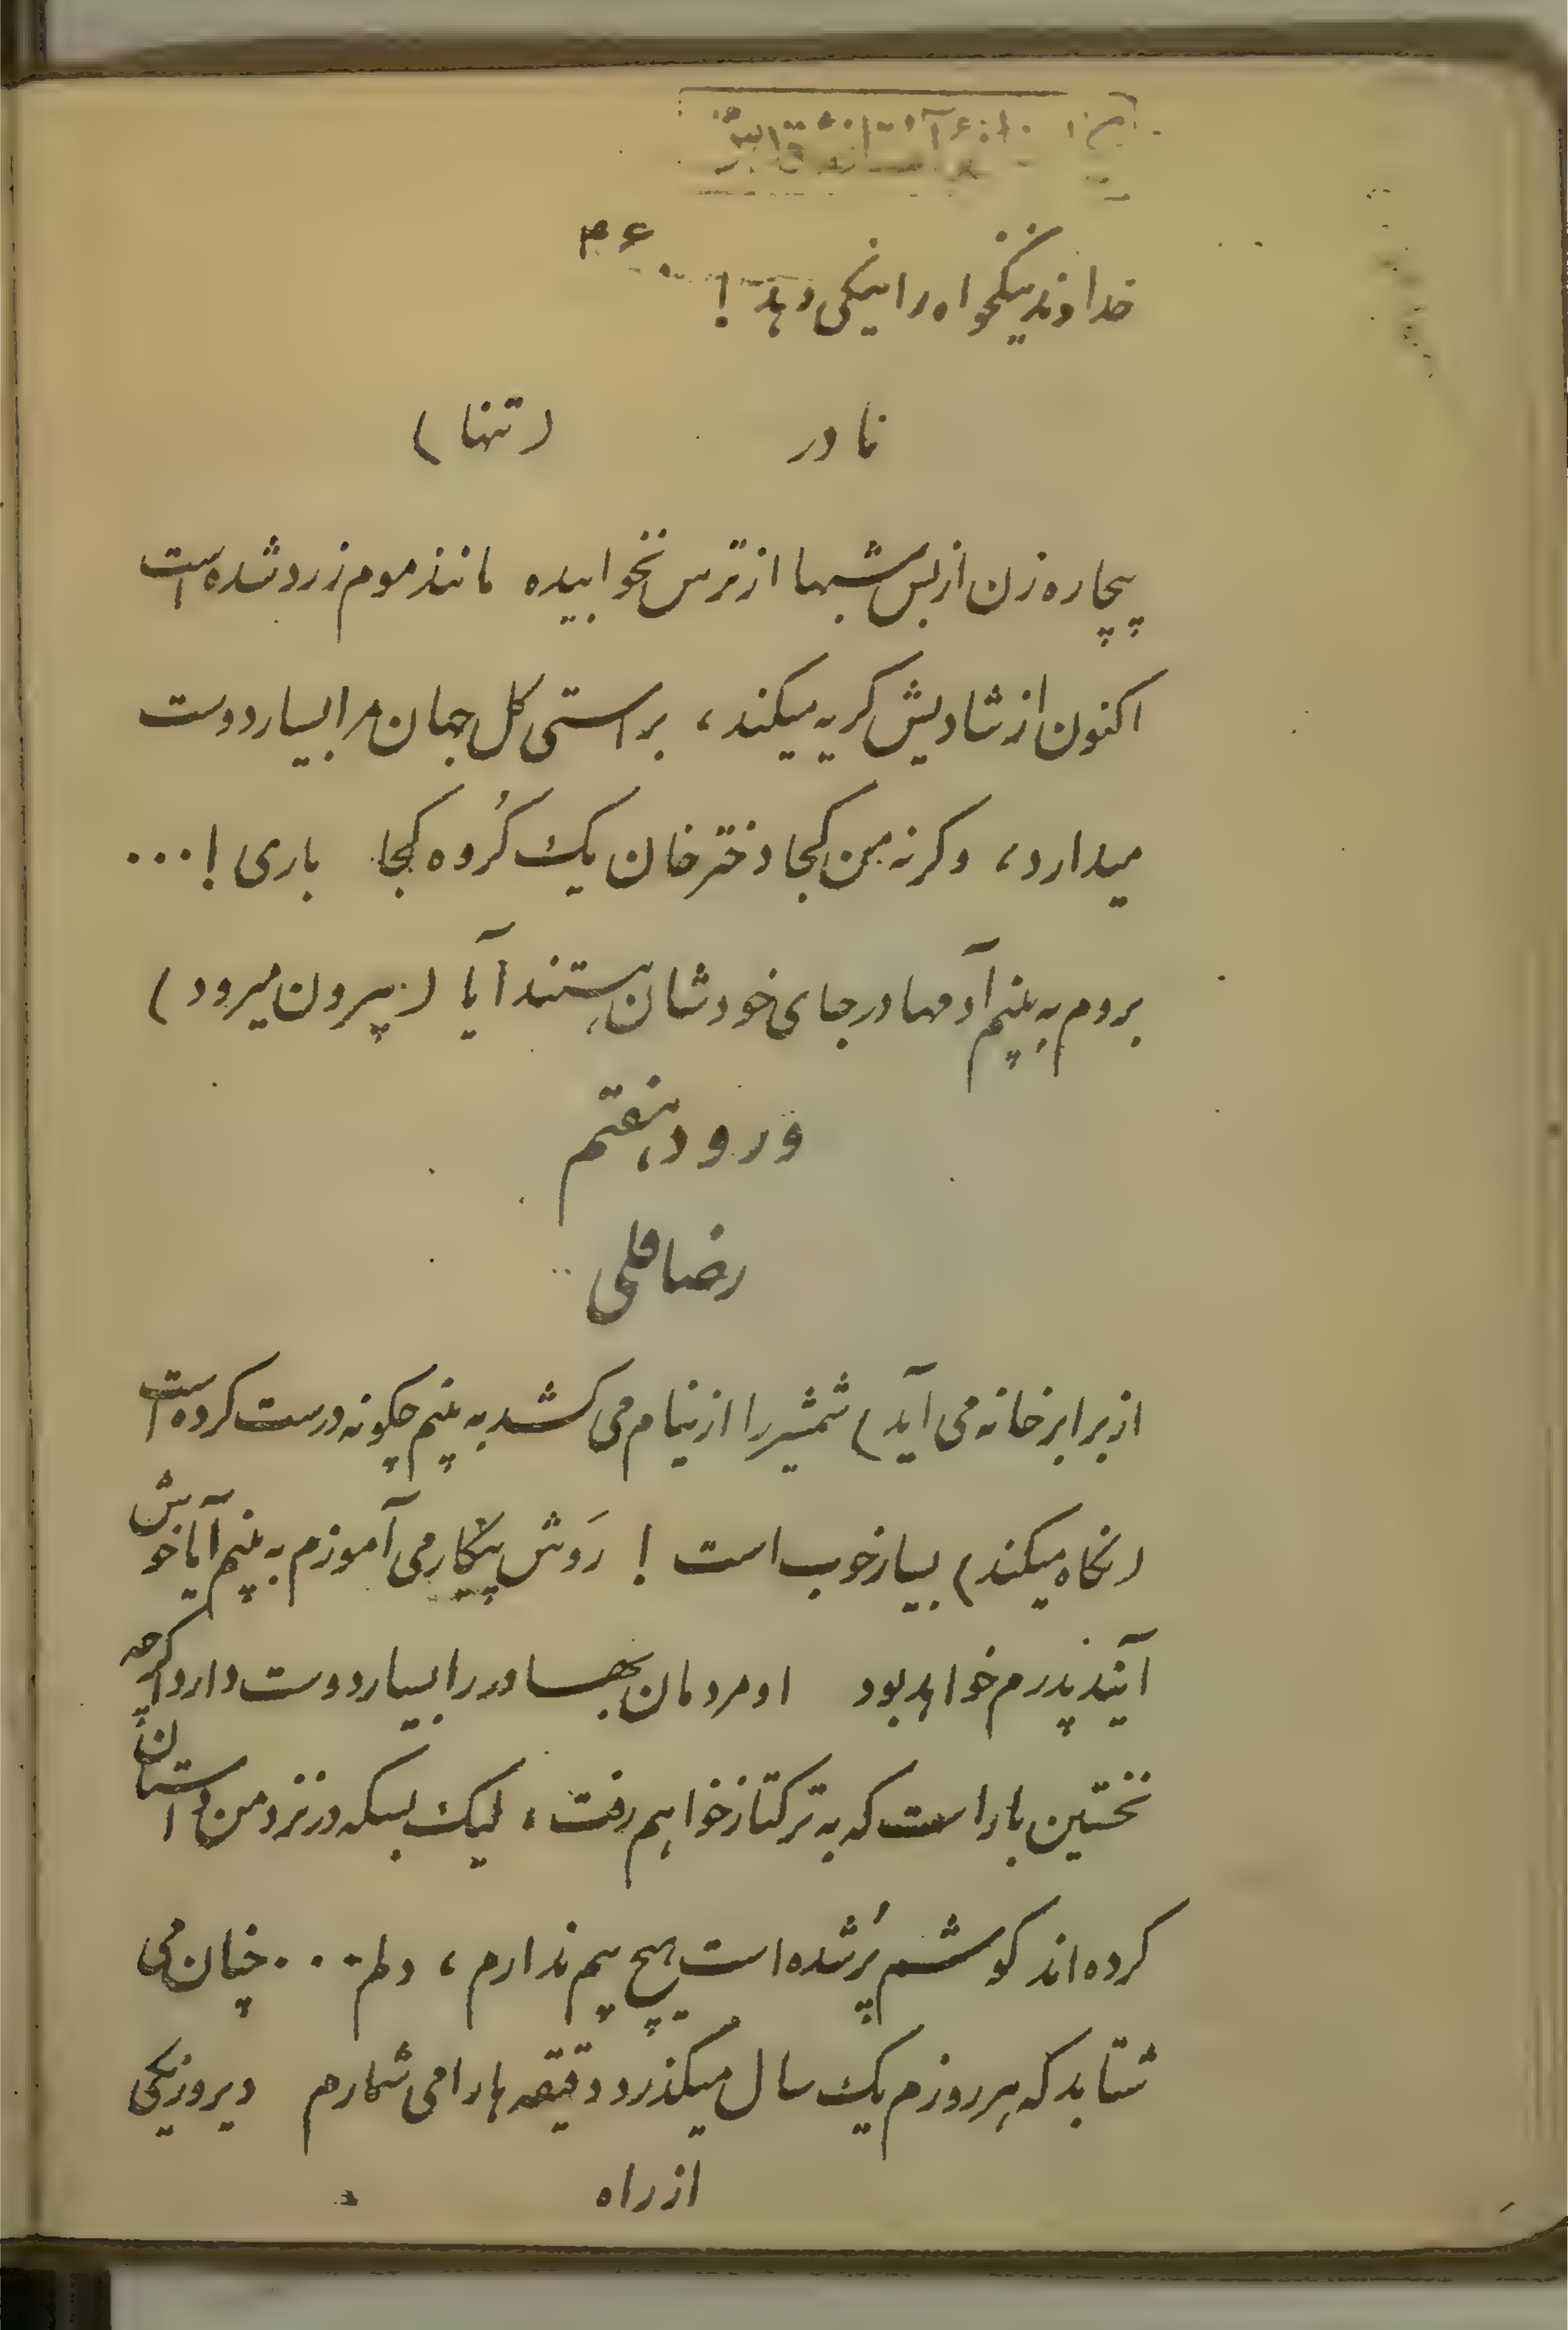 ۴۶
خداوند نیکخواه را نیکی دهد !
نادر (تنها)
بیچاره زن از بس شبها از ترس نخوابیده مانند موم زرد شده است
اکنون از شادیش کریه میکند ، براستی کل جهان مرا بسیار دوست
میدارد ، وکرنه من کجا دختر خان یک کُروه کجا باری ! ...
بروم به بینم آدمها در جای خودشان هستند آیا ( بیرون میرود )
ورود هفتم
رضا قلی
از برابر خانه می آید ) شمشیر را از نیام می کشد به بینم چکونه درست کرده است
( نکاه میکند ) بسیار خوب است ! رَوش پیکار می آموزم به بینم آیا خوش
آیند پدرم خواهد بود او مردمان بهادر را بسیار دوست دارد اکرچه
نخستین بار است که به ترکتاز خواهیم رفت ، لیک بسکه در نزد من داستان
کرده اند کوشم پُر شده است هیچ بیم ندارم ، دلم ... چنان می
شتابد که هر روزم یک سال میکذرد دقیقه ها را می شمارم دیروز یکی
از راه